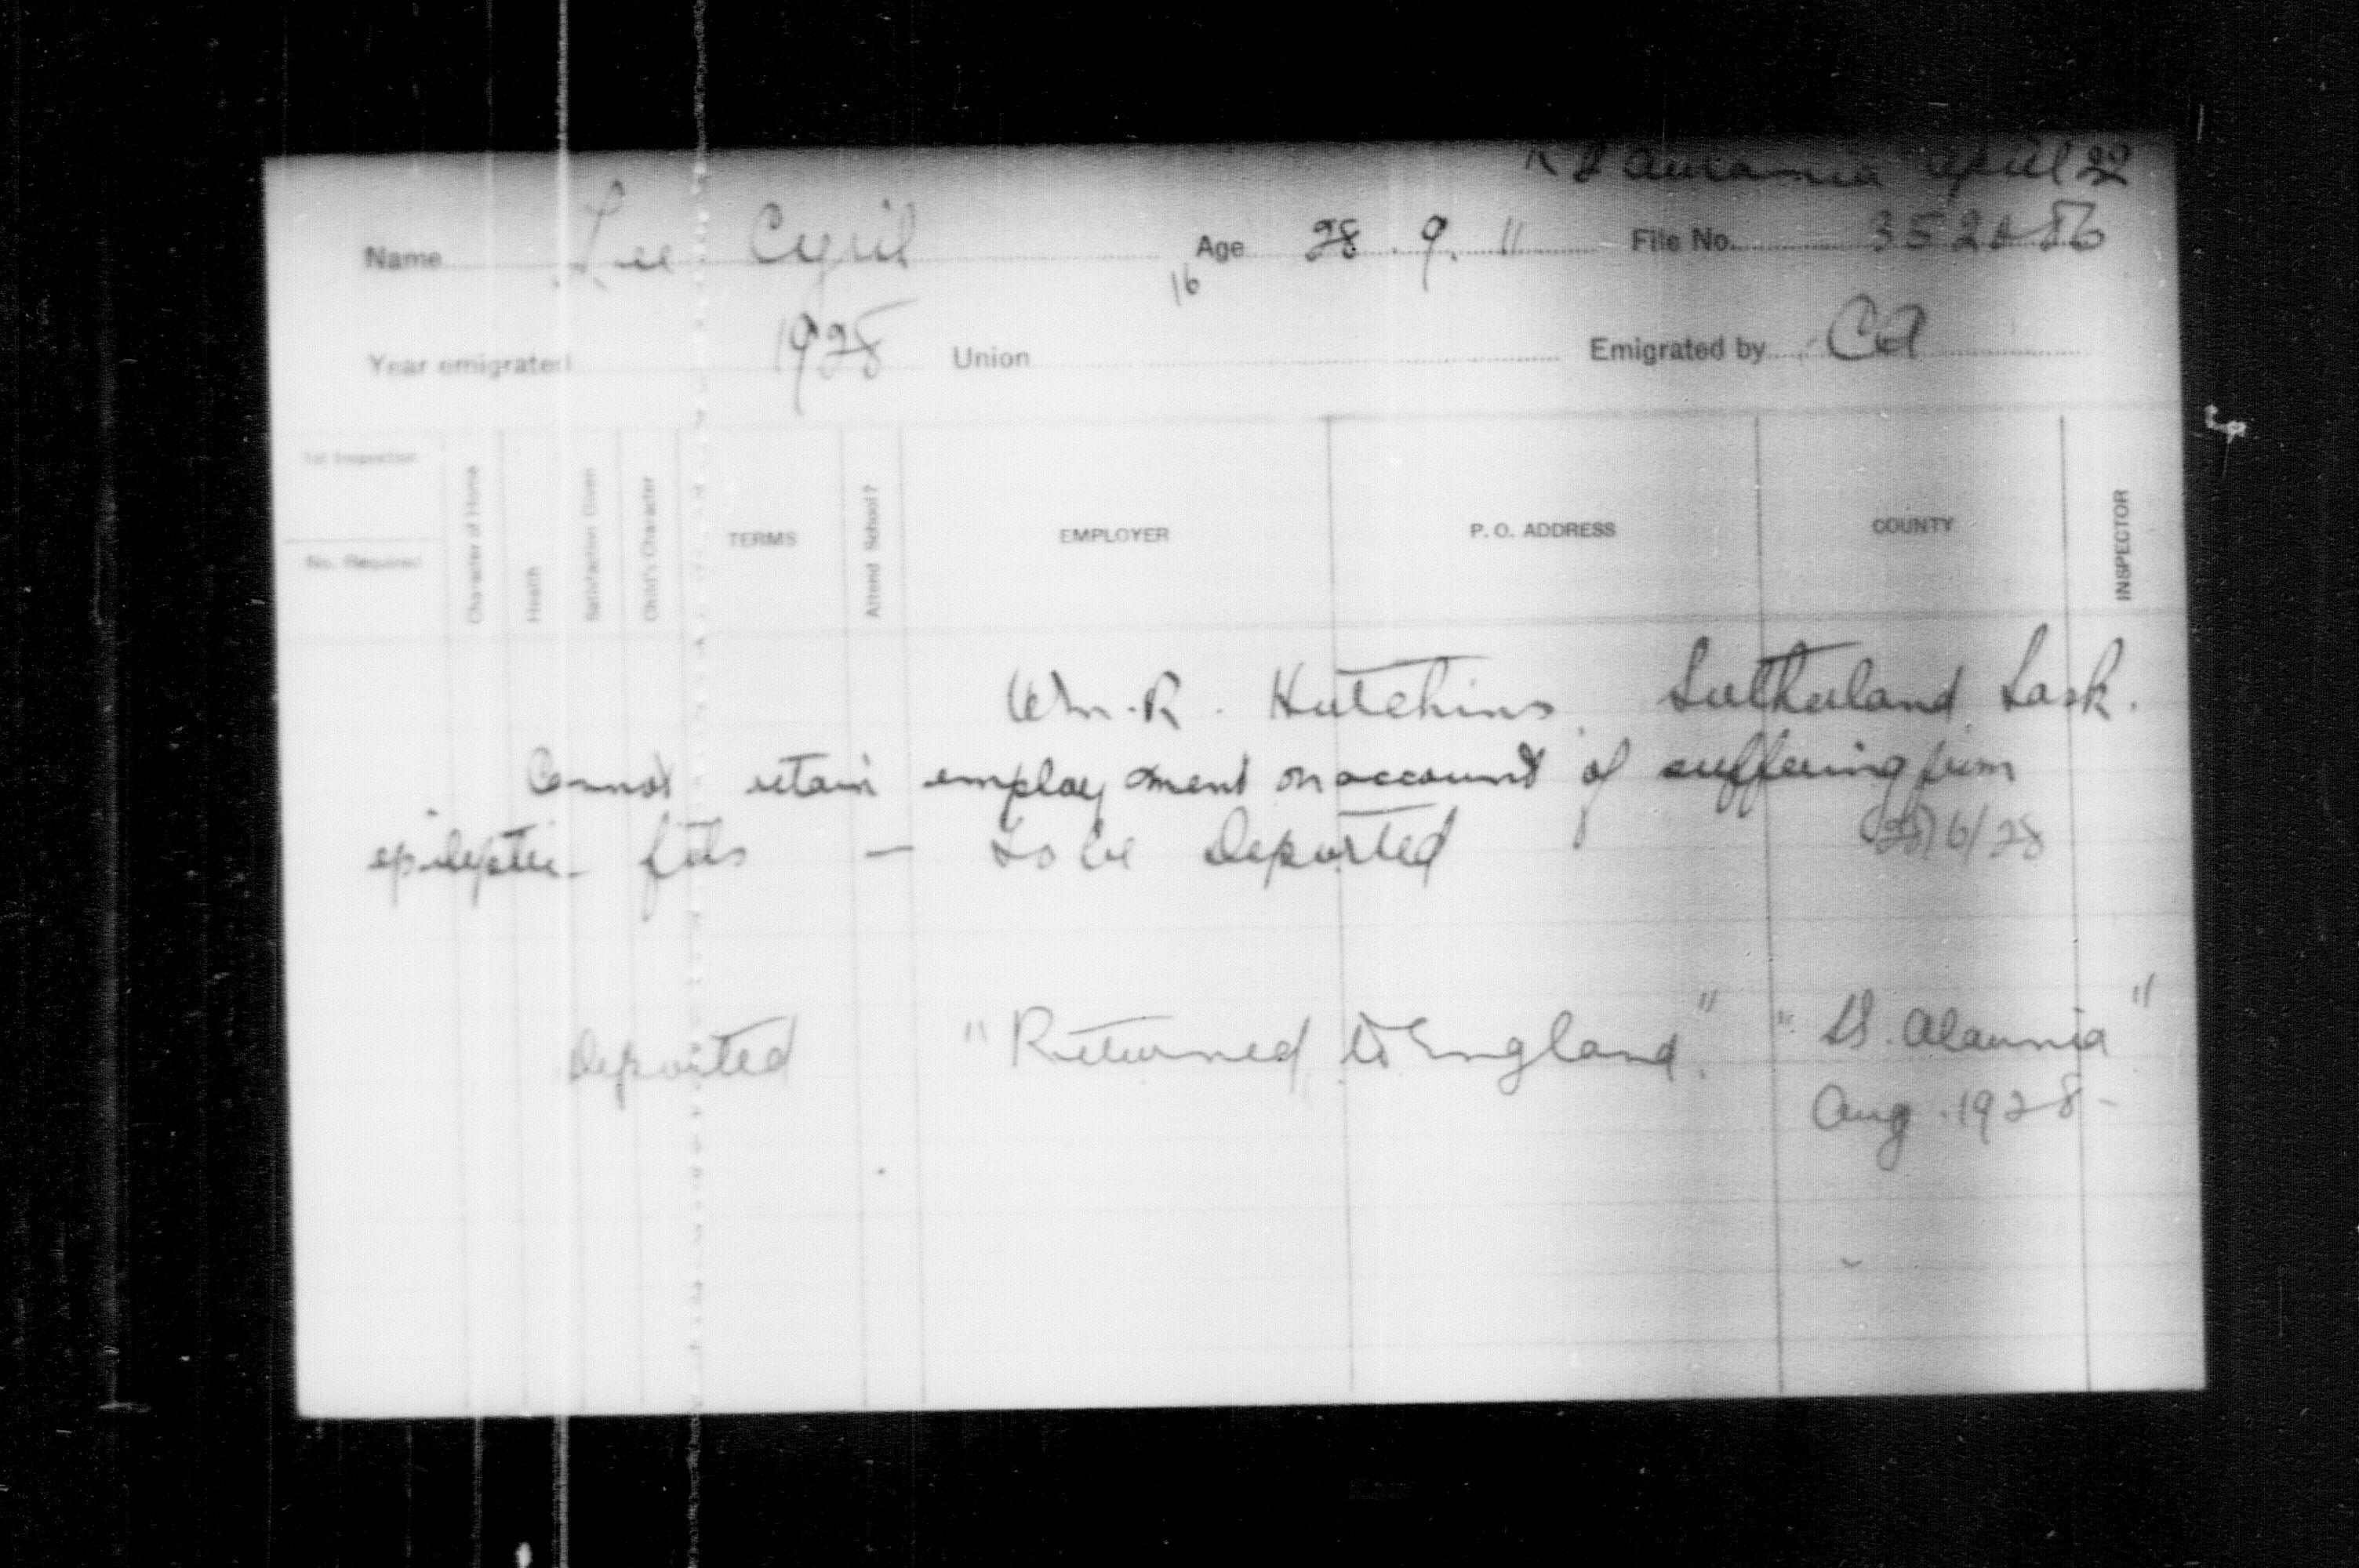 Aurania April 22
Name Lee Cyril Age 28 . 9. 11 File No. 352086
16
Year emigrated 1928 Union Emigrated by CA
1st Inspection
No. Required
Character of Home
Health
Satisfaction Given
Child's Character
TERMS
Attend School?
EMPLOYER
P. O. ADDRESS
COUNTY
INSPECTOR
Wm. R. Hutchins, Sutherland, Sask.
Cannot retain employment on account of suffering from
epileptic fits — to be Deported 28/6/28
Deported "Returned to England." "SS. Alaunia"
Aug. 1928-